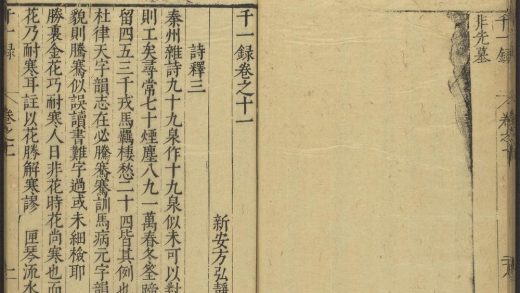 非先墓
千一録 卷之十
千一録卷之十一
新安方弘靜
詩釋三
秦州雜詩九十九泉作十九泉似未可以對
則工矣尋常七十煙塵八九一萬春冬
留四五三千戎馬羈棲愁二十四皆其例也
杜律天字韻志在必騰騫騫訓馬病元字韻
貌則騰騫似誤讀書難字過或未細檢耶
勝裏金花巧耐寒人日非花時花尚寒也而
花乃耐寒耳註以花勝解寒謬 匣琴流水
千一録 卷之十一 一